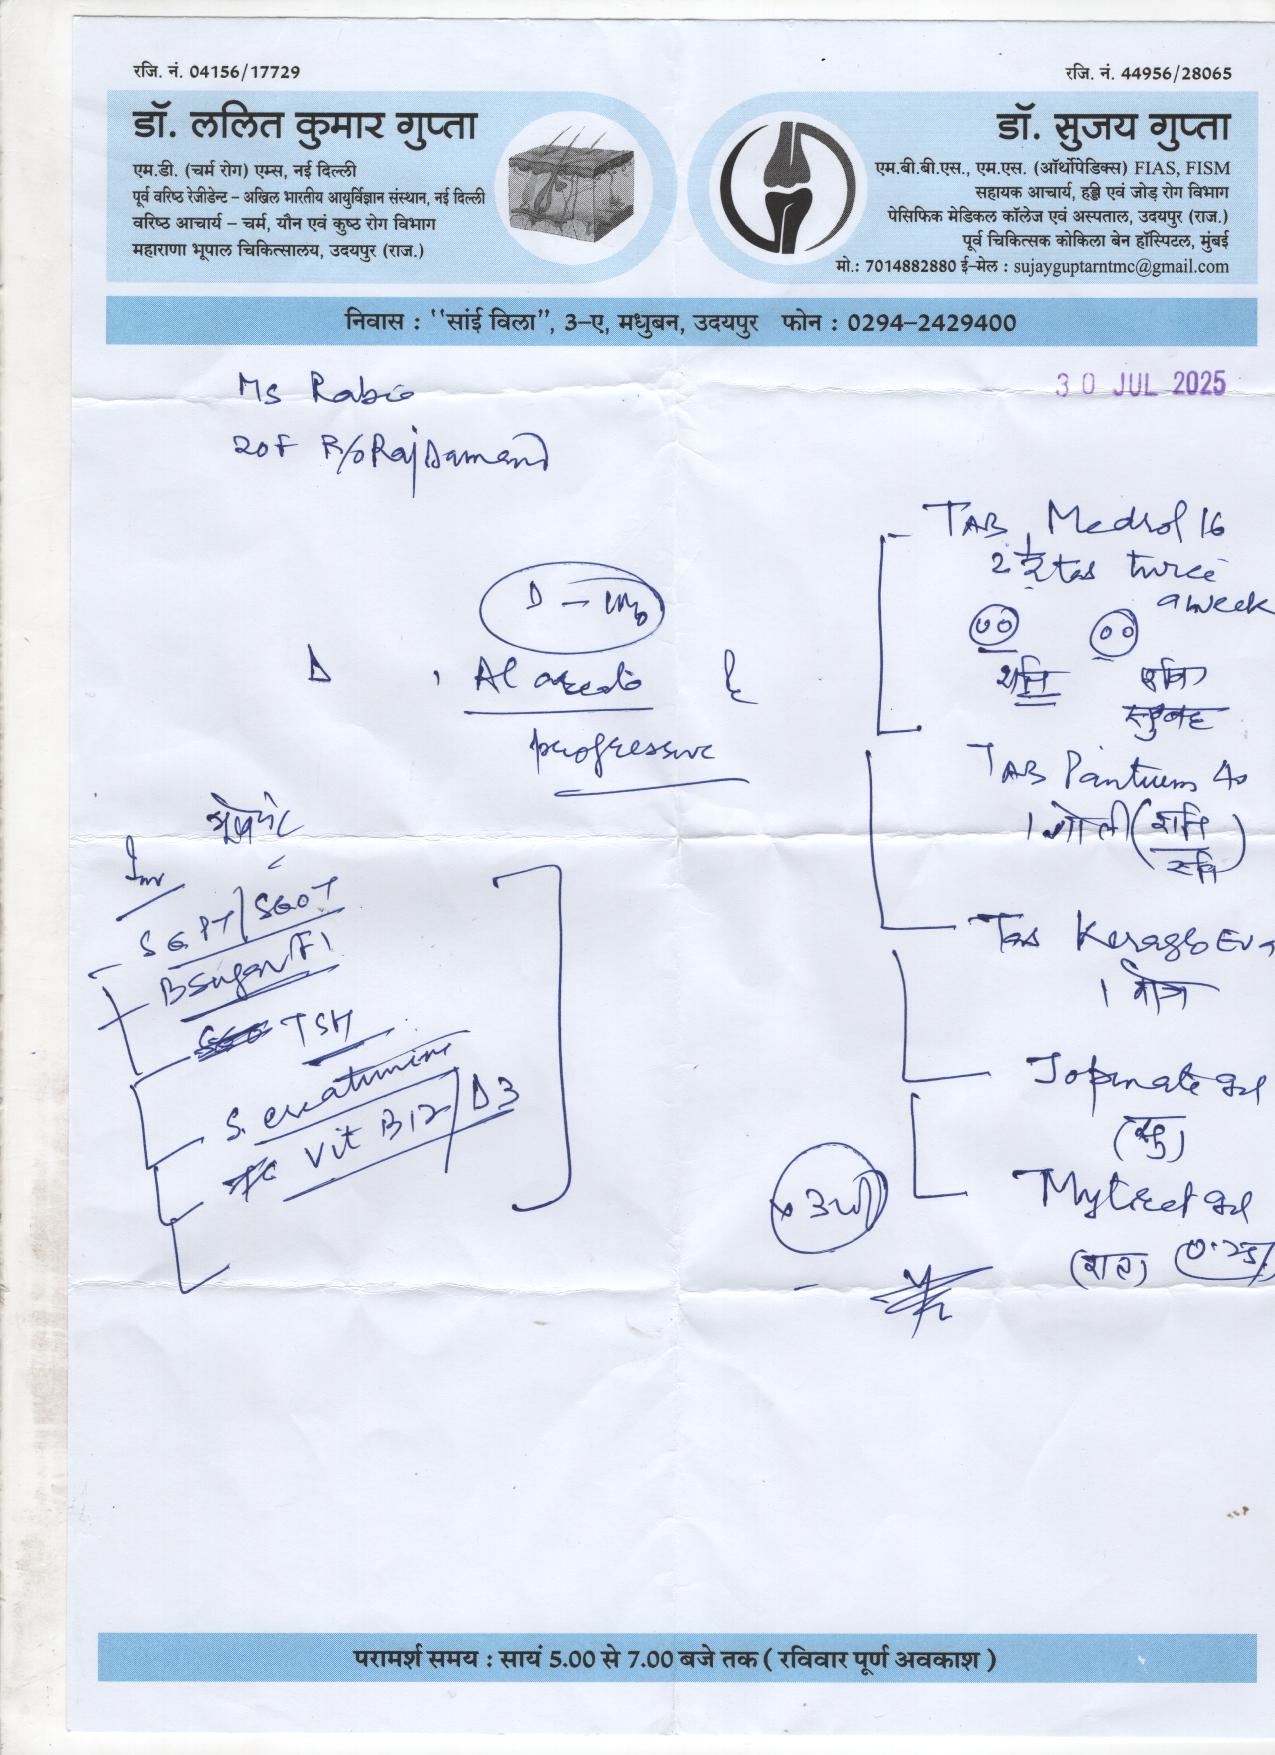 रजि. नं. 04156/17729
डॉ. ललित कुमार गुप्ता
एम.डी. (चर्म रोग) एम्स, नई दिल्ली
पूर्व वरिष्ठ रेजीडेन्ट – अखिल भारतीय आयुर्विज्ञान संस्थान, नई दिल्ली
वरिष्ठ आचार्य – चर्म, यौन एवं कुष्ठ रोग विभाग
महाराणा भूपाल चिकित्सालय, उदयपुर (राज.)
रजि. नं. 44956/28065
डॉ. सुजय गुप्ता
एम.बी.बी.एस., एम.एस. (ऑर्थोपेडिक्स) FIAS, FISM
सहायक आचार्य, हड्डी एवं जोड़ रोग विभाग
पेसिफिक मेडिकल कॉलेज एवं अस्पताल, उदयपुर (राज.)
पूर्व चिकित्सक कोकिला बेन हॉस्पिटल, मुंबई
मो.: 7014882880 ई–मेल : sujayguptarntmc@gmail.com
निवास : ''सांई विला'', 3–ए, मधुबन, उदयपुर फोन : 0294–2429400
30 JUL 2025
Ms
20F R/o RajSamand
progressive
Inv
SGPT/SGOT
B Sugar (F)
TSH
S. creatinine
Vit B12/D3
TAB Medrol 16
2 1/2 tab twice
a week
शनि रवि
सुबह
TAB 40
1 गोली (शनि
रवि)
Tab
1 रोज
gel
gel
(रात)
परामर्श समय : सायं 5.00 से 7.00 बजे तक ( रविवार पूर्ण अवकाश )